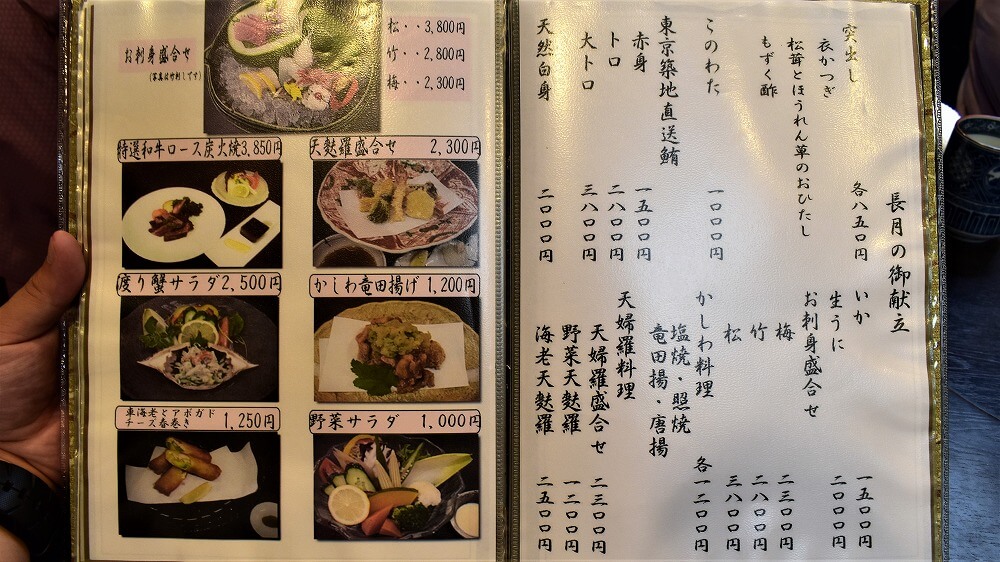 お刺身盛合せ
(写真は竹刺しです)
松・・3,800円
竹・・2,800円
梅・・2,300円
特選和牛ロース炭火焼3,850円
天麩羅盛合せ 2,300円
度り蟹サラダ2,500円
かしわ竜田揚げ1,200円
車海老とアボガド
チーズ春巻き 1,250円
野菜サラダ 1,000円
長月の御献立
突出し 各八五〇円
衣かつぎ
松茸とほうれん草のおひたし
もずく酢
このわた 一〇〇〇円
東京築地直送鮪
赤身 一五〇〇円
トロ 二八〇〇円
大トロ 三八〇〇円
天然白身 二〇〇〇円
いか 一五〇〇円
生うに 二〇〇〇円
お刺身盛合せ
梅 二三〇〇円
竹 二八〇〇円
松 三八〇〇円
かしわ料理 各一二〇〇円
塩焼・照焼
竜田揚・唐揚
天婦羅料理
天婦羅盛合せ 二三〇〇円
野菜天麩羅 一二〇〇円
海老天麩羅 二五〇〇円